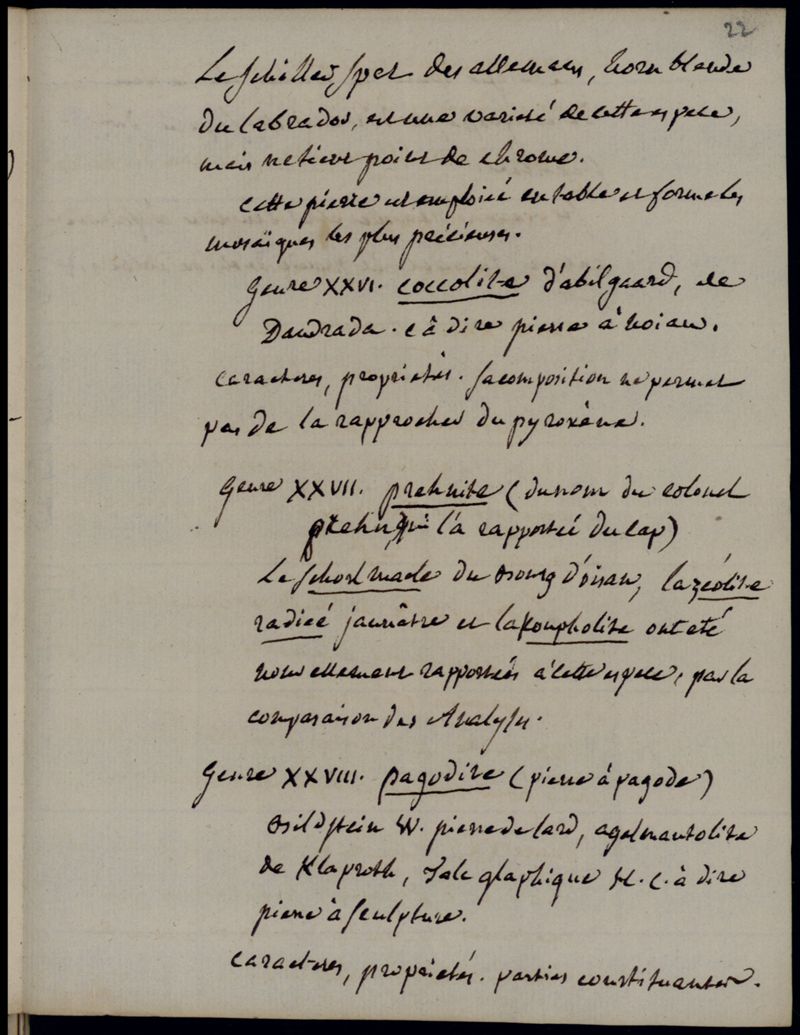 22
Le Schiller Spat des allemans, hornblende
Du labrador, est une varieté de cette espece,
mais ne tient point de chrome.
cette pierre est emploiée en table et forme les
mosaïques les plus précieuses.
Genre XXVI. coccolite d'abilgaard, de
Dandrada. c à dire pierre à noiau.
caracteres, proprietés. sa composition ne permet
pas de la rapprocher du pyroxène.
Genre XXVII. prehnite (du nom du colonel
prehn, qui l'a rapportée du cap)
Le schorl macle du bourg d'oisan, la zéolite
radiée jaunâtre et la koupholite ont été
nouvellement rapportées à cette espece, par la
comparaison des Analyses.
Genre XXVIII. pagodite (pierre à pagode)
Bildstein W. pierre de lard, agalmatolite
de Klaproth, Talc glaphique H. c. à dire
pierre à sculpture.
caracteres, proprietés. parties constituantes.